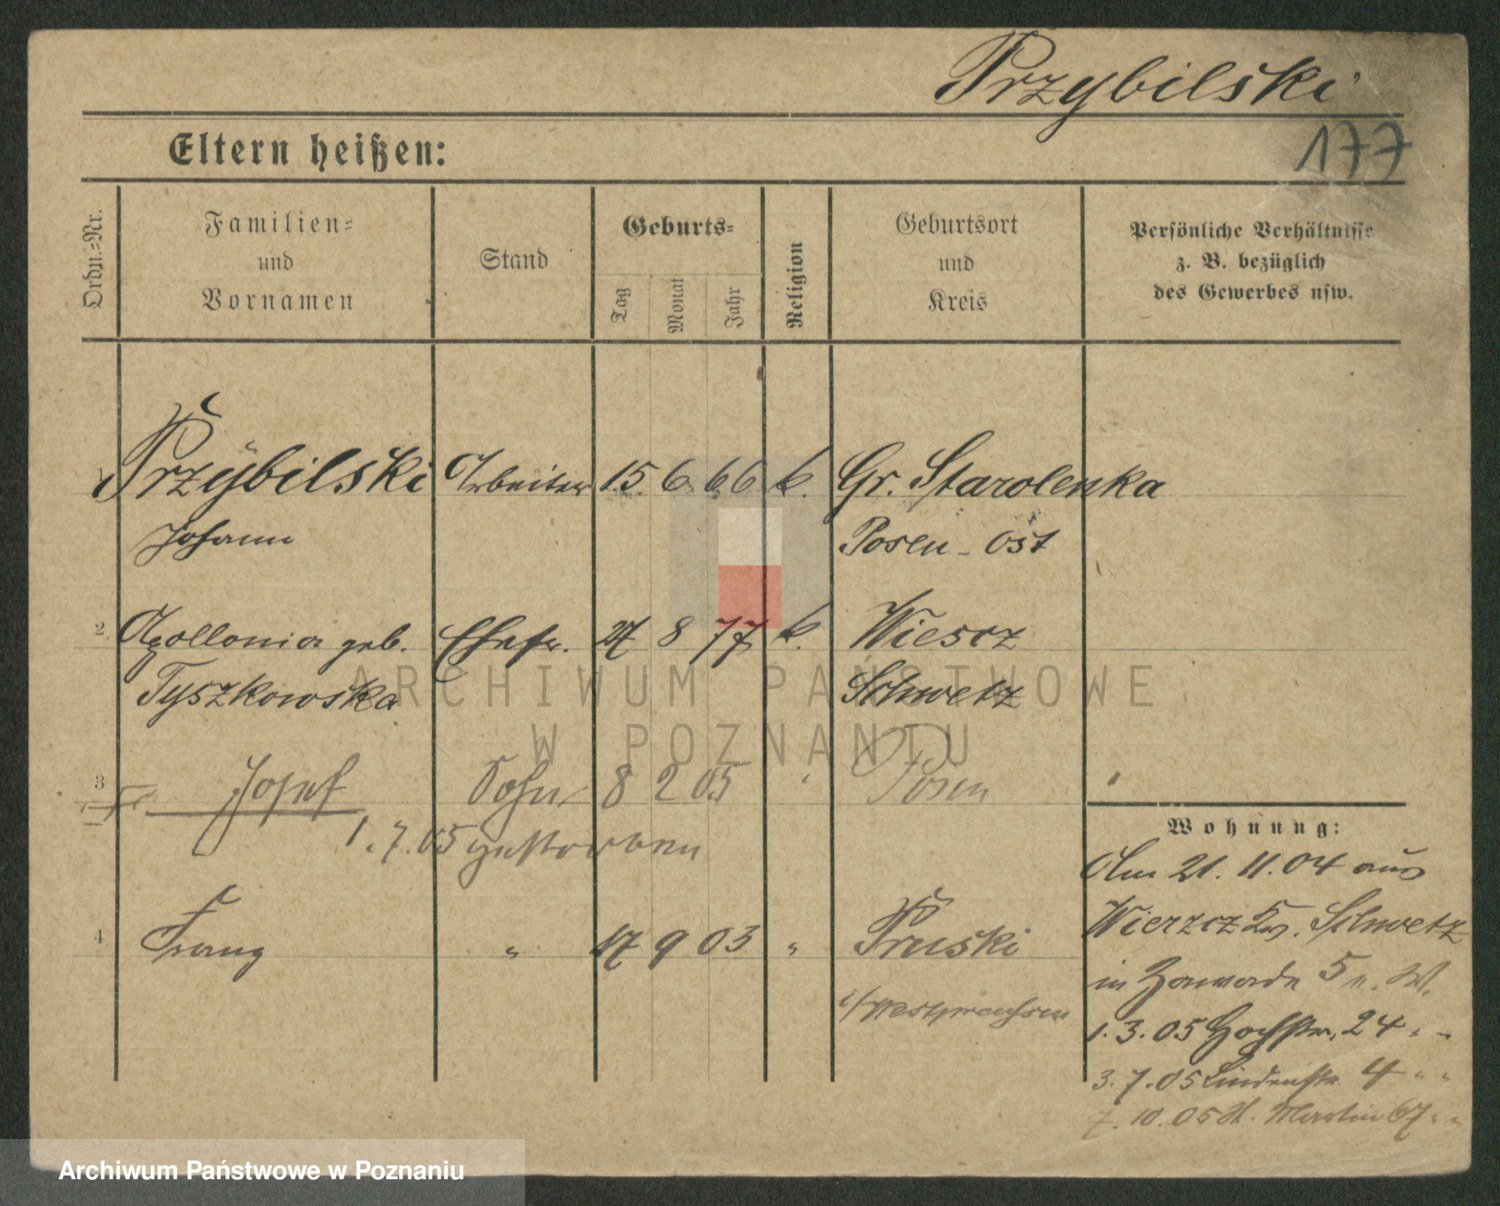 Przybilski
177
Eltern heißen:
Ordn.-Nr.
Familien-
und
Vornamen
Stand
Geburts-
Tag
Monat
Jahr
Religion
Geburtsort
und
Kreis
Persönliche Verhältnisse
z. B. bezüglich
des Gewerbes usw.
1 Przybilski Arbeiter 15 6 66 k. Gr. Starolenka
Johann Posen-Ost
2 Apollonia geb. Ehefr. 27 8 77 k. Wiescz
Tyszkowska Schwetz
3 Josef Sohn 8 2 05 " Posen
1.7.05 gestorben
4 Franz " 17 9 03 " Pruski
i/Westpreußen
Wohnung:
Am 21. 11. 04 aus
Wierzcz Kr. Schwetz
in 5 n. W.
1.3.05 Hochstr. 24 " "
3.7.05 Lindenstr. 4 " "
7.10.05 St. Martin 67 " "
ARCHIWUM PAŃSTWOWE
W POZNANIU
Archiwum Państwowe w Poznaniu